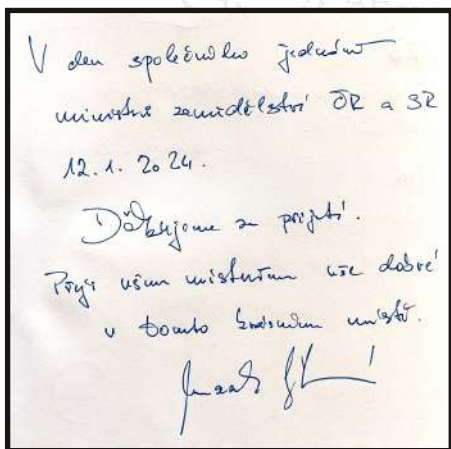 V den společného jednání
ministrů zemědělství ČR a SR
12.1.2024.
Děkujeme za přijetí.
Přeji všem vše dobré
v tomto krásném místě.